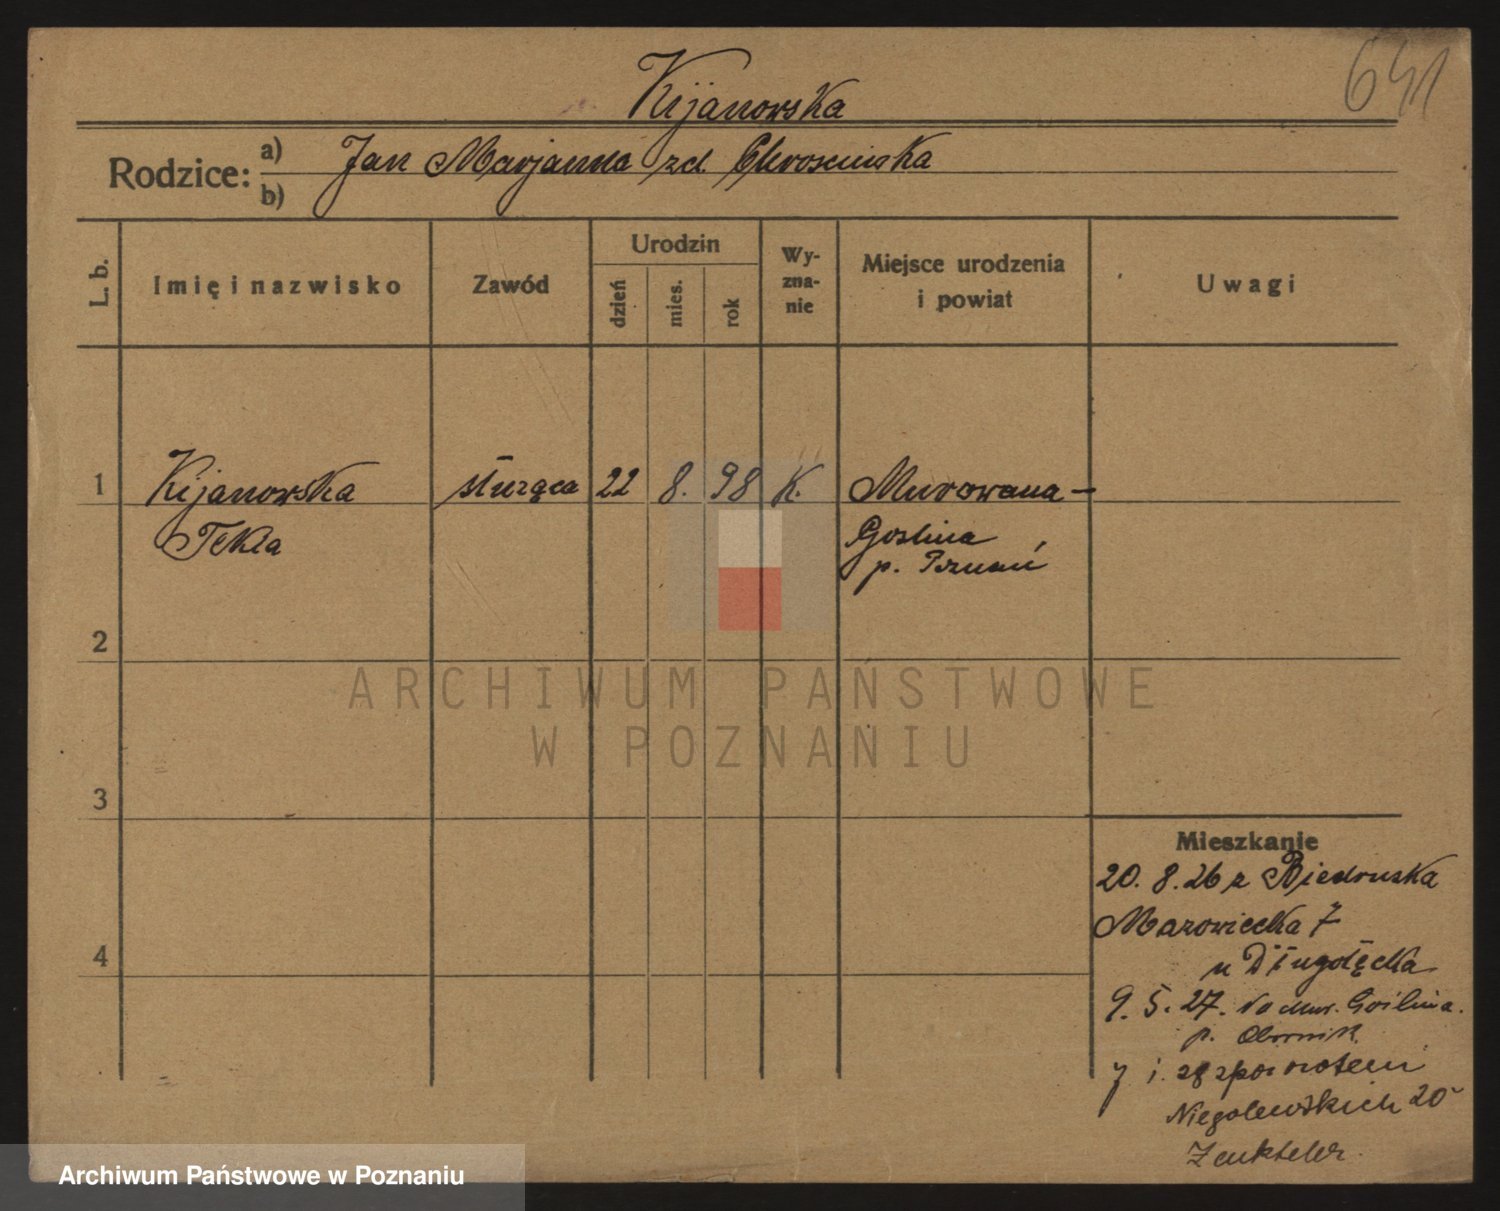 641
Kijanowska
Rodzice: a) Jan Marjanna zd. Chroscinska
b)
L. b. Imię i nazwisko Zawód Urodzin dzień mies. rok Wyzna-nie Miejsce urodzenia i powiat Uwagi
1 Kijanowska służąca 22 8. 98 K. Murowana-
Tekla Goslina
p. Poznań
2
ARCHIWUM PAŃSTWOWE
W POZNANIU
3
Mieszkanie
20. 8. 26 z Biedruska
Mazowiecka 7
4
u Długołęcka
9. 5. 27. do Mur. Goślina.
p. Obornik
z powrotem
Niegolewskich 20
Zenkteler.
Archiwum Państwowe w Poznaniu